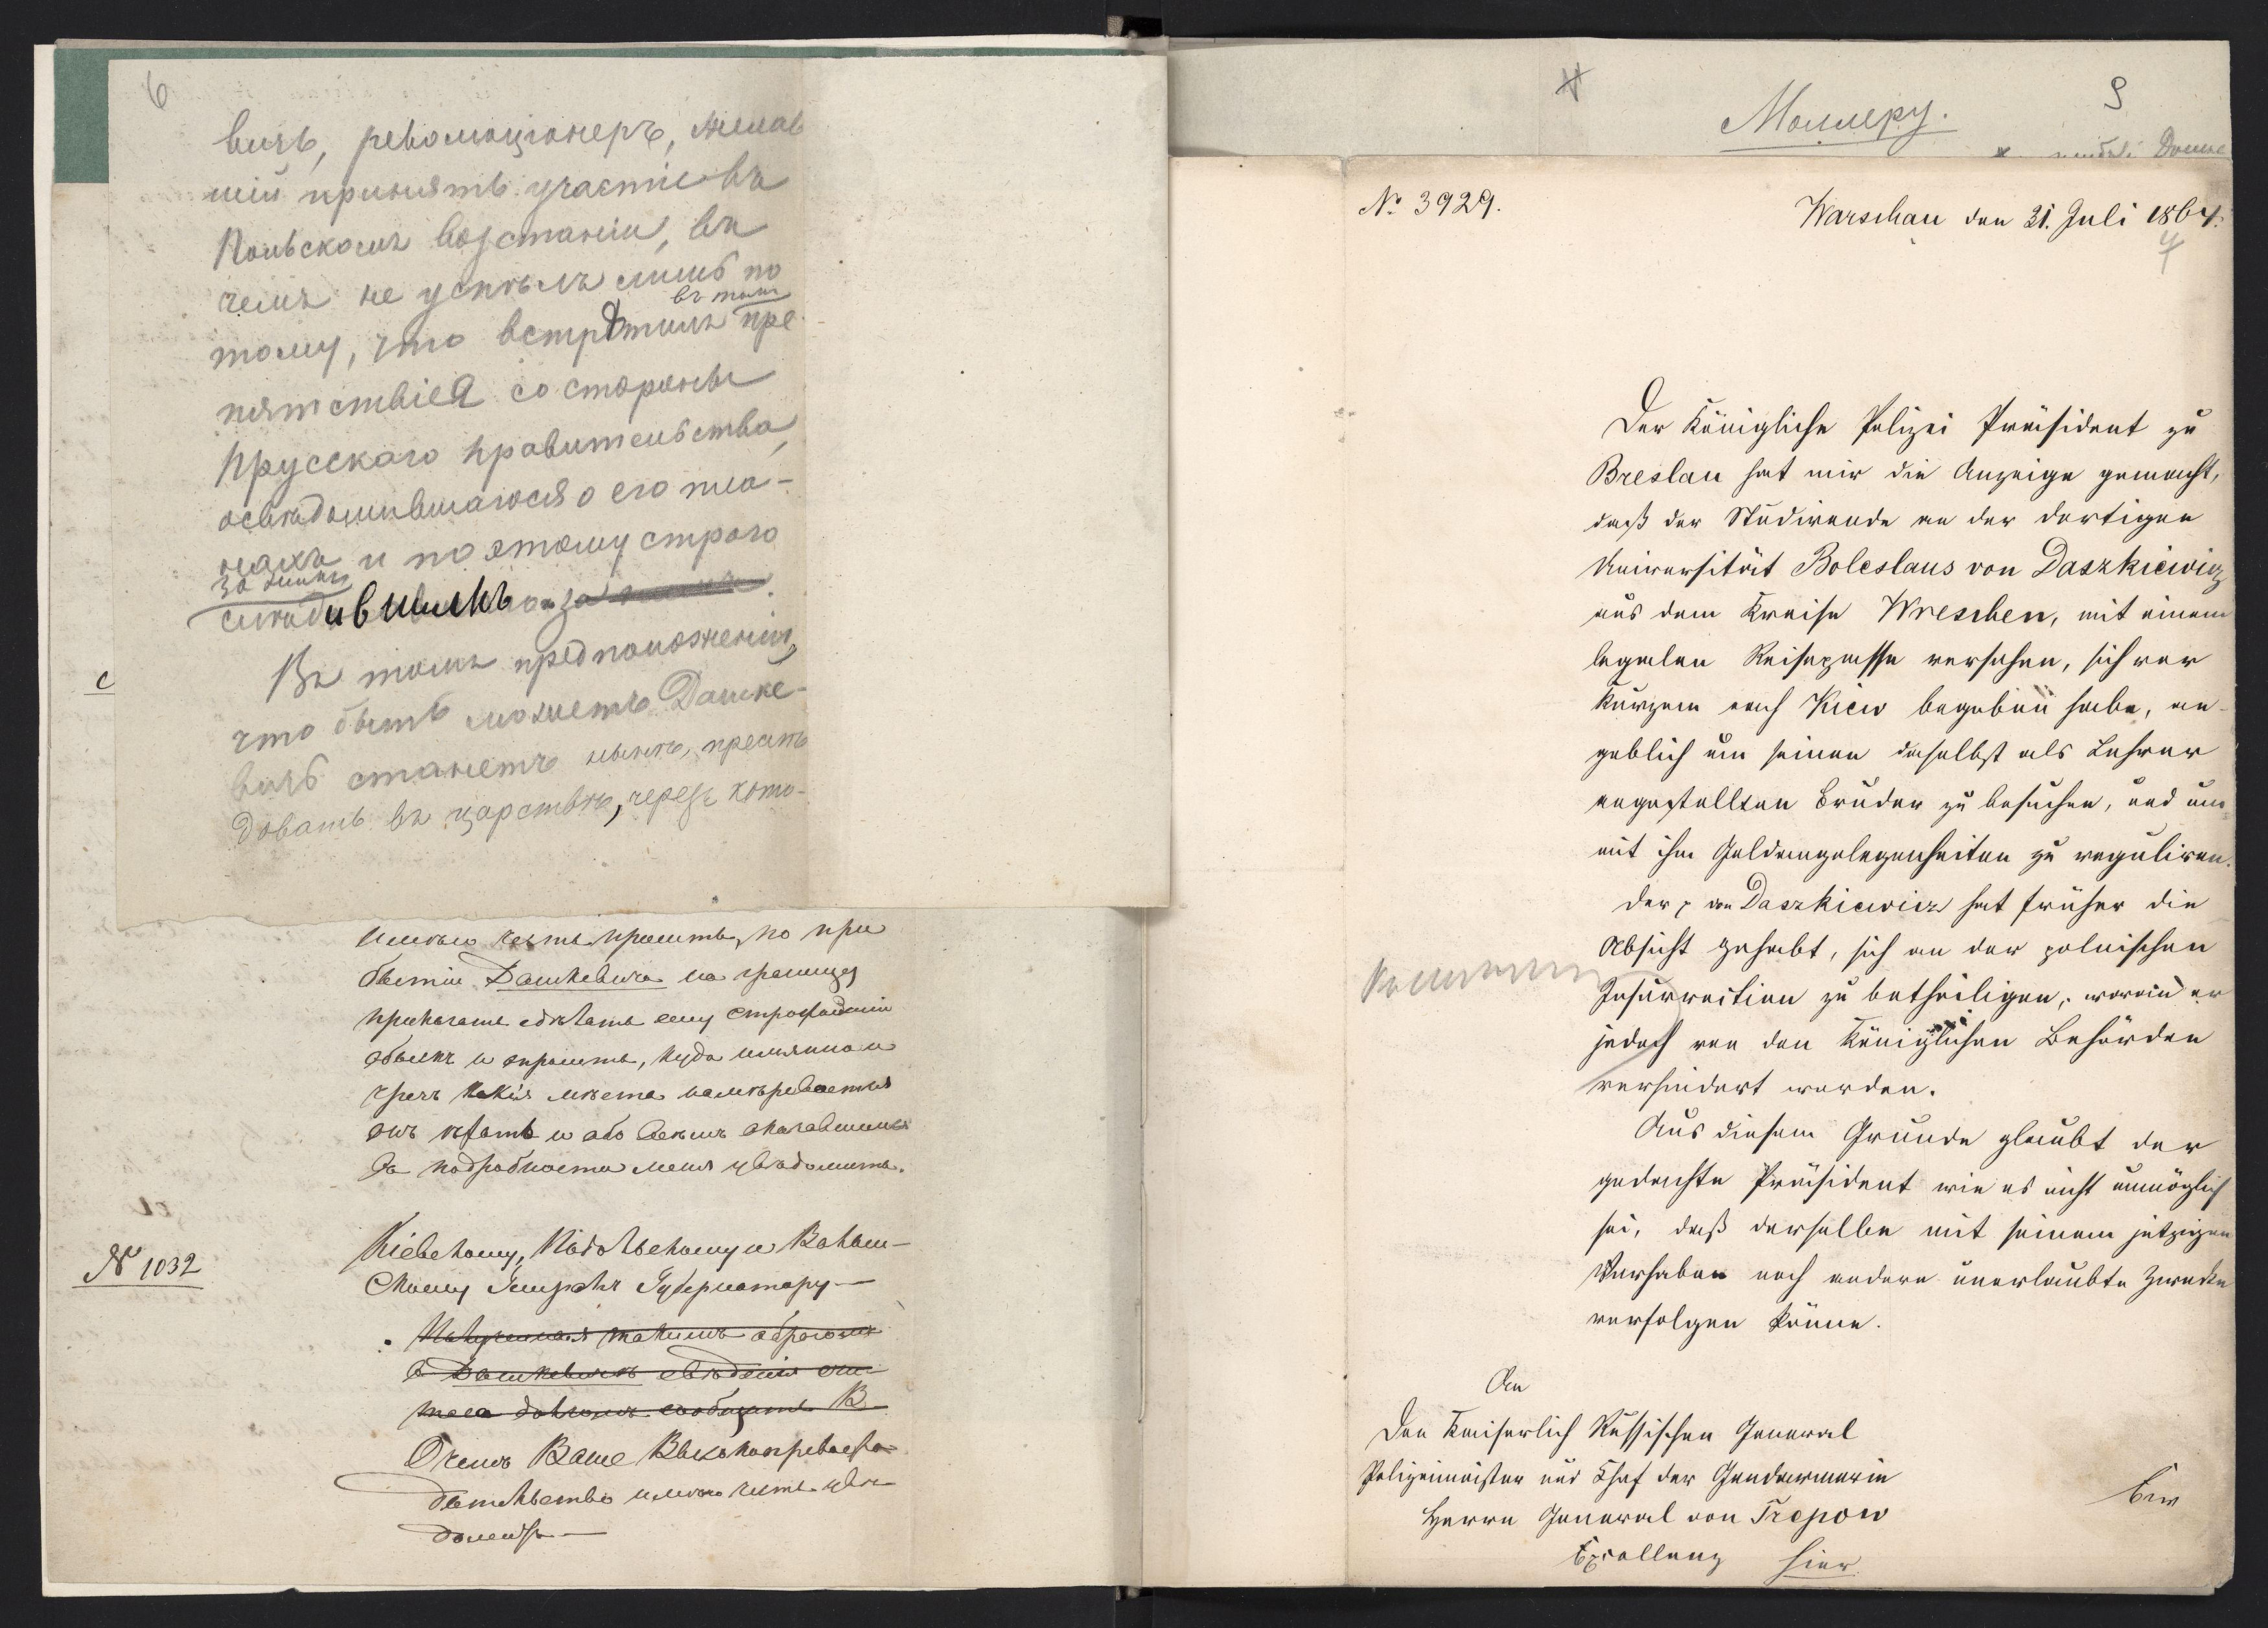 6
вичъ, революціонеръ, желав
шій принять участіе въ
Польскомъ возстаніи, въ
чемъ не успѣлъ лишь по
въ томъ
тому, что встрѣтилъ пре-
пятствія со стороны
Прусскаго правительства,
освѣдомившагося о его пла-
нахъ и по этому строго
за нимъ
слѣдившимъ за
Въ томъ предположеніи,
что быть можетъ Дашке-
вичъ станетъ нынѣ,
довать въ царствѣ, черезъ кото-
с
Имѣю честь просить, по при
бытіи Дашкевича на границу
приказать сдѣлать ему строжайшій
обыскъ и спросить, куда именно и
чрезъ какія мѣста намѣревается
онъ ѣхать и обо всемъ оказавшемся
въ подробности меня увѣдомить.
№ 1032
Кіевскому, Подольскому и Волын-
скому Генералъ Губернатору —
Полученныя такимъ образомъ
о Дашкевичѣ свѣдѣнія
долгомъ сообщить В
О чемъ Ваше Высокопревосхо-
дительство имѣю честь увѣ-
домить —
Моллеру.
9
№ 3929.
Warschau den 21. Juli 1864.
4
Der Königliche Polizei Präsident zu
Breslau hat mir die Anzeige gemacht,
daß der Studirende an der dortigen
Universität Boleslaus von Daszkiewicz
aus dem Kreise Wreschen, mit einem
legalen Reisepasse versehen, sich vor
Kurzem nach Kiew begeben habe, an-
geblich um seinen daselbst als Lehrer
angestellten Bruder zu besuchen, und um
mit ihm Geldangelegenheiten zu reguliren.
Der p von Daszkiewicz hat früher die
Absicht gehabt, sich an der polnischen
Insurrection zu betheiligen, woran er
jedoch von den Königlichen Behörden
verhindert worden.
Aus diesem Grunde glaubt der
gedachte Präsident wie es nicht unmöglich
sei, daß derselbe mit seinem jetzigen
Vorhaben noch andere unerlaubte Zwecke
verfolgen könne.
An
Den Kaiserlich Russischen General
Polizeimeister und Chef der Gendarmerie
Herrn General von Trepow
Excellenz hier